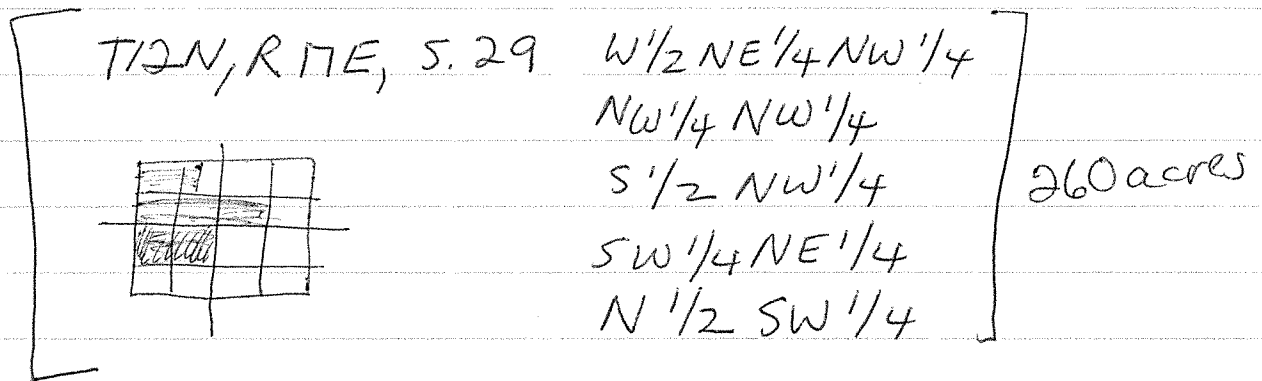 T12N, R17E, S.29 W 1/2 NE 1/4 NW 1/4
NW 1/4 NW 1/4
S 1/2 NW 1/4
SW 1/4 NE 1/4
N 1/2 SW 1/4
260 acres